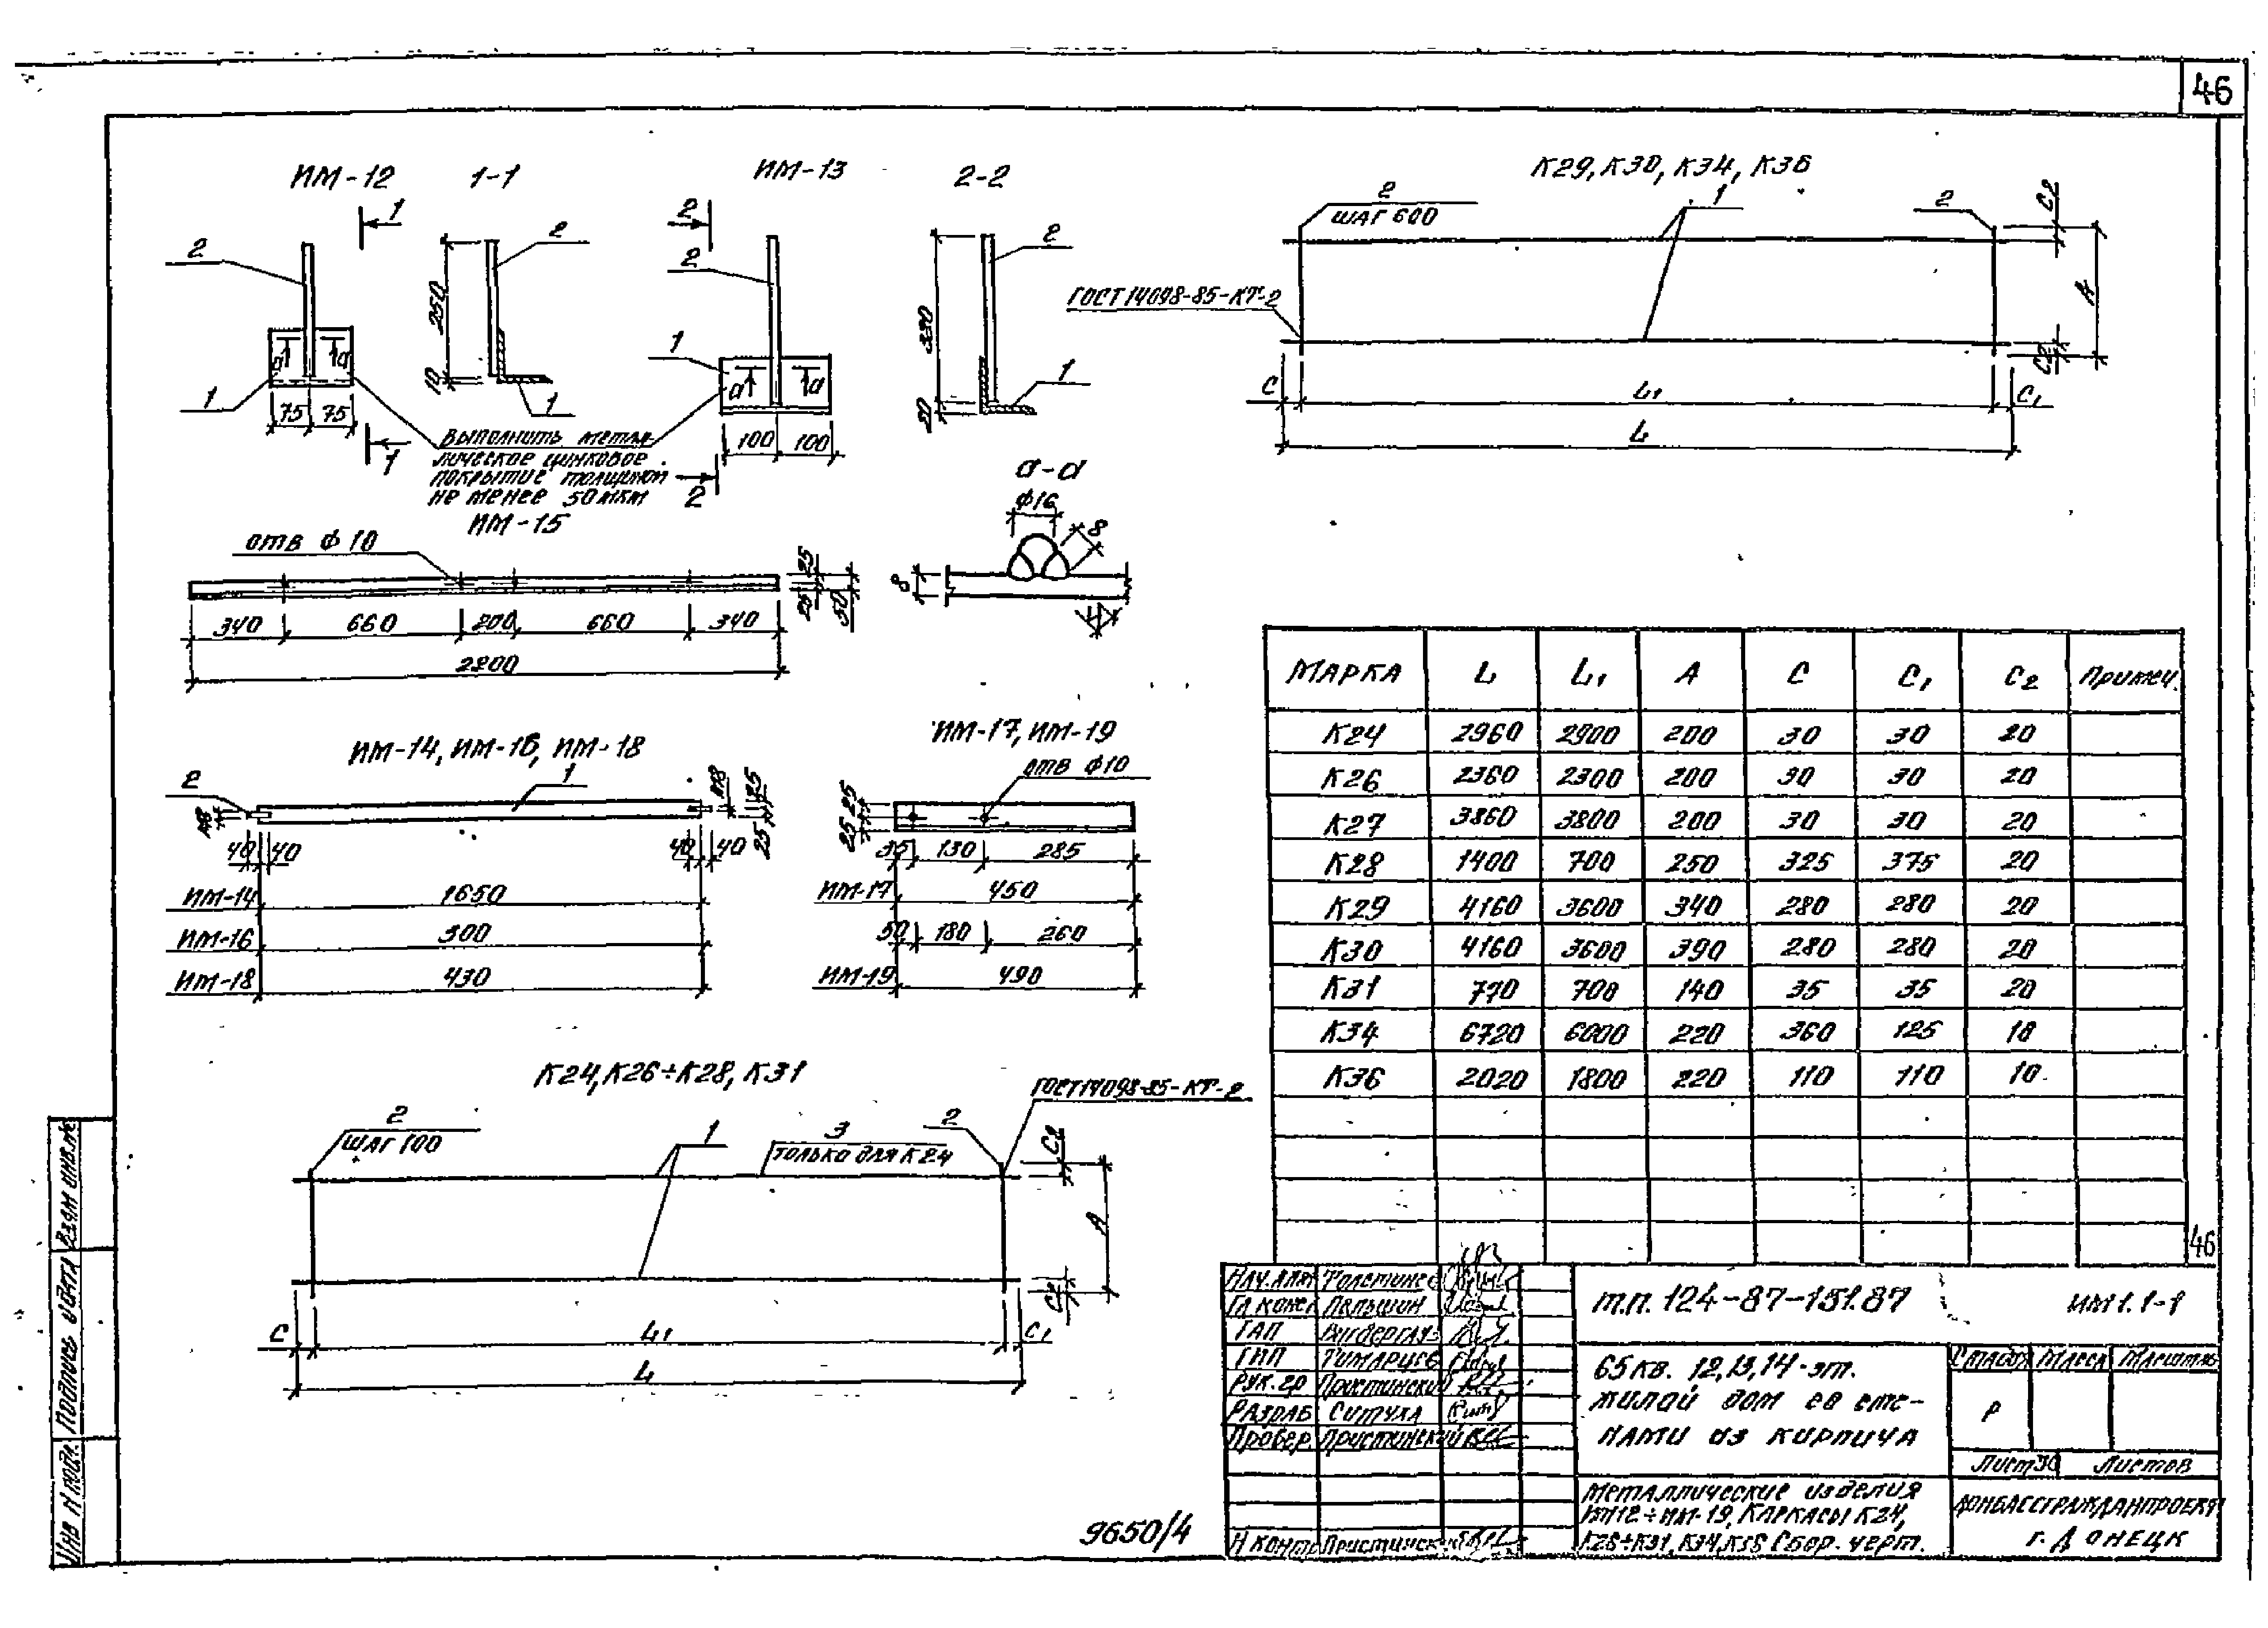 46
ИМ-12
1-1
ИМ-13
2-2
К29, К30, К34, К36
1
2
2
250
10
1
75 75
1
1
2
2
1
100 100
2
2
330
50
1
а
а
а
а
Выполнить метал-
лическое цинковое
покрытие толщиной
не менее 50мкм
2
ШАГ 600
1
2
С2
А
С2
ГОСТ 14098-85-КТ-2
С
L1
С1
L
а-а
ф16
8
8
ИМ-15
отв ф 10
25
25
50
340 660 200 660 340
2200
ИМ-14, ИМ-16, ИМ-18
2
1
М8
М8
25
25
40 40
40 40
ИМ-14 1650
ИМ-16 300
ИМ-18 430
ИМ-17, ИМ-19
отв ф10
25 25
35 130 285
ИМ-17 450
50 180 260
ИМ-19 490
МАРКА L L1 А С С1 С2 Примеч.
К24 2960 2900 200 30 30 20
К26 2360 2300 200 30 30 20
К27 3860 3800 200 30 30 20
К28 1400 700 250 325 375 20
К29 4160 3600 340 280 280 20
К30 4160 3600 390 280 280 20
К31 770 700 140 35 35 20
К34 6720 6000 220 360 125 10
К36 2020 1800 220 110 110 10
К24, К26÷К28, К31
2
ШАГ 100
1
3
только для К24
2
ГОСТ 14098-85-КТ-2
С2
А
С2
С
L1
С1
L
46
Гл. конс
ГАП
ГИП
Рук. гр Пристинский
Разраб Ситуха
Провер. Пристинский
Н контр Пристинский
т.п. 124-87-151.87 ИМ 1.1-1
65 кв. 12,13,14-эт.
жилой дом со сте-
нами из кирпича
Стадия Масса Масштаб
Р
Лист Листов
Металлические изделия
ИМ12÷ИМ-19, Каркасы К24,
К26÷К31, К34, К36 Сбор. черт.
ДОНБАССГРАЖДАНПРОЕКТ
г. Донецк
9650/4
Взам инв.№
Подпись и дата
Инв № подл.